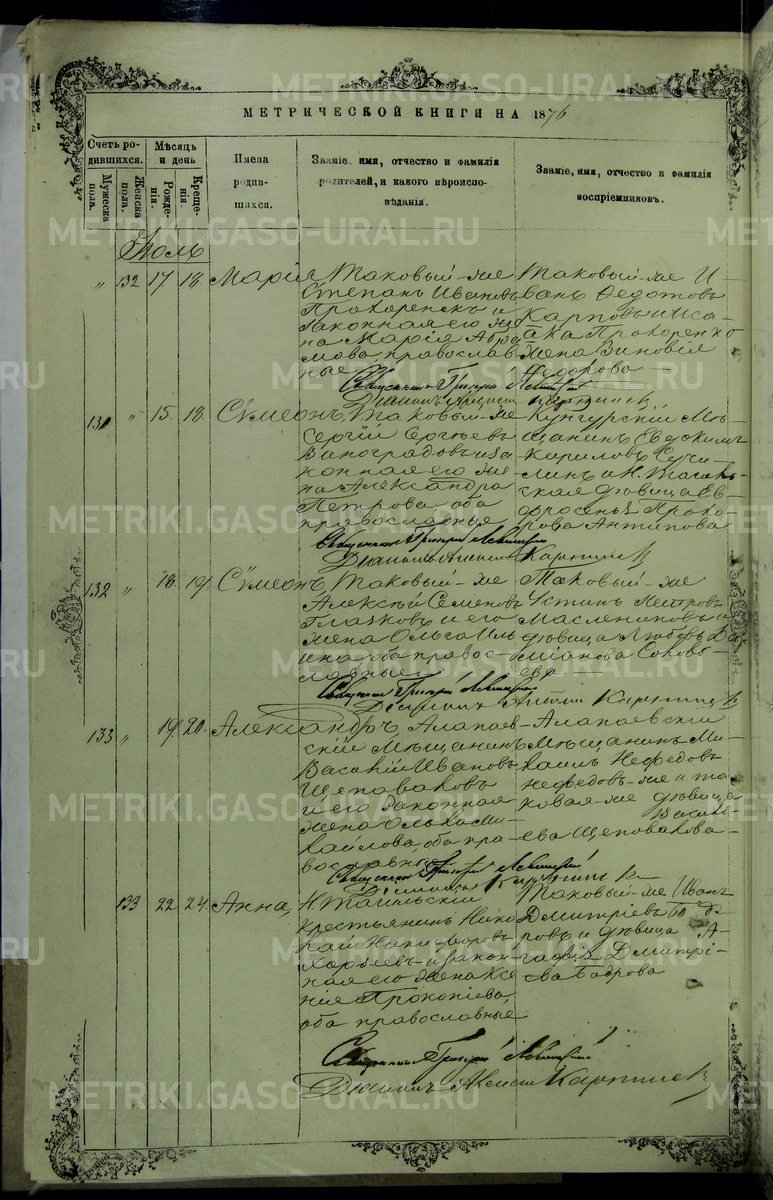 МЕТРИЧЕСКОЙ КНИГИ НА 1876
Счетъ родившихся.
Мужеска пола.
Женска пола.
Мѣсяцъ и день
Рожденія.
Крещенія.
Имена родившихся.
Званіе, имя, отчество и фамилія родителей, и какого вѣроисповѣданія.
Званіе, имя, отчество и фамилія воспріемниковъ.
Іюль
" 132 17 18. Марія
Таковый-же
Степанъ Ивановъ
Прохоренск и
законная его же
на Марія Абра
мова, православ
ные
Таковый-же И
ванъ Федотовъ
Карповъ и Иса
ака Прохоренко
жена Зиновія
Федорова
Священникъ Григорій Левитскій
131 " 15. 18. Сѵмеонъ,
Таковый-же
Сергій Сергѣевъ
Виноградовъ и за
конная его же
на Александра
Петрова оба
православные
Кунгурскій мѣ
щанинъ Евдокимъ
Кириловъ
и Н. Тагиль
ская дѣвица Ев
фросинья Прохо
рова Антипова
Священникъ Григорій Левитскій
132 " 18. 19. Сѵмеонъ,
Таковый-же
Алексѣй Семеновъ
Глазковъ и его
жена Ольга Иль
ина, оба правос
лавные
Таковый-же
Устинъ Петровъ
Маслениковъ и
дѣвица Любовь Да
міанова Соловь
ева.
Священникъ Григорій Левитскій
133 " 19. 20. Александръ,
Алапаев
скій мѣщанинъ
Василій Ивановъ
Щеповаковъ
и его законная
жена Ольга Ми
хайлова, оба пра
вославные
Алапаевскій
мѣщанинъ Ми
хаилъ Нефедовъ
Нефедовъ-же и та
ковая-же дѣвица
Василь
ева Щеповакова
Священникъ Григорій Левитскій
133 22 24. Анна,
Н. Тагильскій
крестьянинъ Нико
лай Никифоровъ
и закон
ная его жена Ксе
нія Прокопіева,
оба православные
Таковый-же Иванъ
Дмитріевъ Бод
ровъ и дѣвица А
гафья Дмитрі
ева Бодрова
Священникъ Григорій Левитскій
METRIKI.GASO-URAL.RU